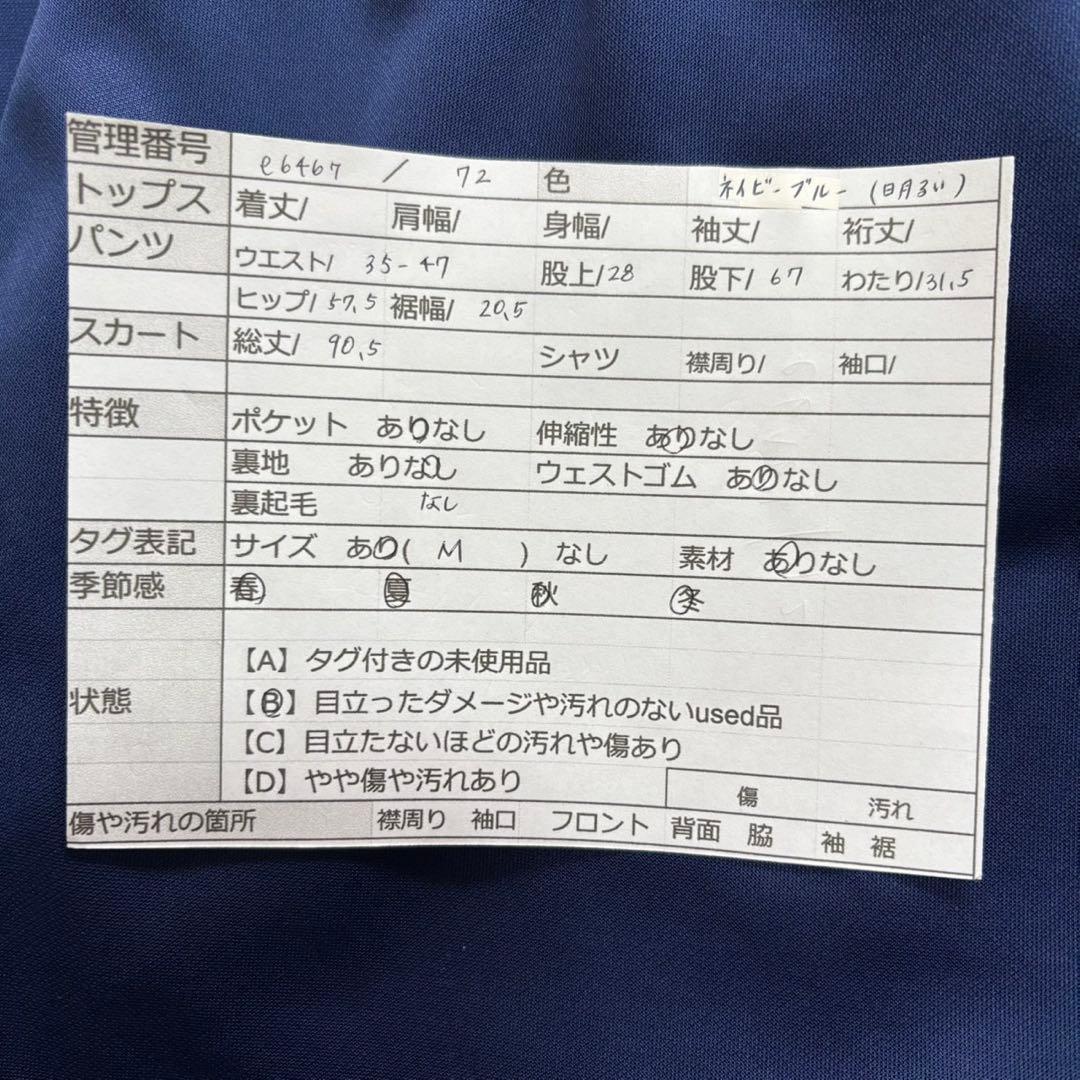 管理番号 e6467 / 72 色 ネイビーブルー (明るい)
トップス 着丈/ 肩幅/ 身幅/ 袖丈/ 裄丈/
パンツ ウエスト/ 35-47 股上/28 股下/ 67 わたり/31.5
ヒップ/ 57.5 裾幅/ 20.5
スカート 総丈/ 90.5 シャツ 襟周り/ 袖口/
特徴 ポケット ありなし 伸縮性 ありなし
裏地 ありなし ウェストゴム ありなし
裏起毛 なし
タグ表記 サイズ あり( M ) なし 素材 ありなし
季節感 春 夏 秋 冬
【A】タグ付きの未使用品
状態 【B】目立ったダメージや汚れのないused品
【C】目立たないほどの汚れや傷あり
【D】やや傷や汚れあり 傷 汚れ
傷や汚れの箇所 襟周り 袖口 フロント 背面 脇 袖 裾